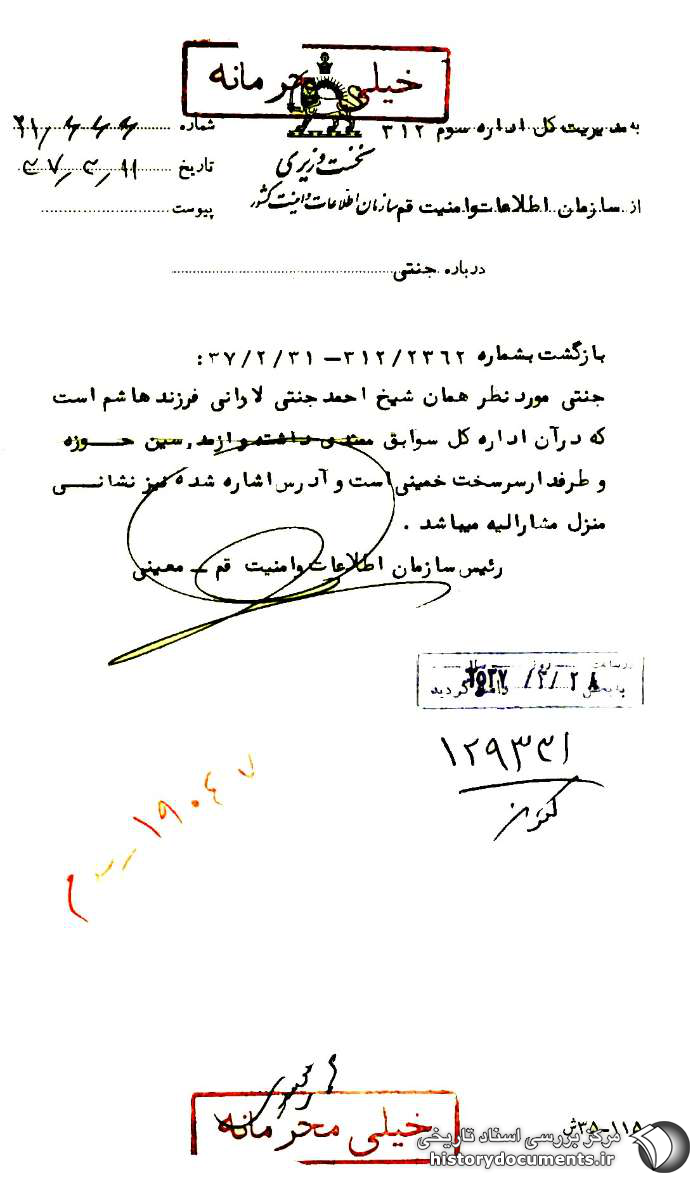 خیلی محرمانه
به مدیریت کل اداره سوم ۳۱۲
شماره
نخست وزیری
تاریخ ۳۷/۳/۱۱
از سازمان اطلاعات وامنیت قم
سازمان اطلاعات وامنیت کشور
پیوست
درباره جنتی
بازگشت بشماره ۳۱۲/۲۳۶۲ – ۳۷/۲/۳۱ :
جنتی مورد نظر همان شیخ احمد جنتی لادانی فرزند هاشم است
که درآن اداره کل سوابق متعددی داشته و ازمدرسین حوزه
و طرفدار سرسخت خمینی است و آدرس اشاره شده نیز نشانی
منزل مشارالیه میباشد .
رئیس سازمان اطلاعات وامنیت قم – معینی
روز
۲۵۳۷ /۳/ ۲۸
گردید
۱۲۹۳۳۱
۱۹۰۴۷
خیلی محرمانه
۳۵-۱۱۵ش
مرکز بررسی اسناد تاریخی
historydocuments.ir